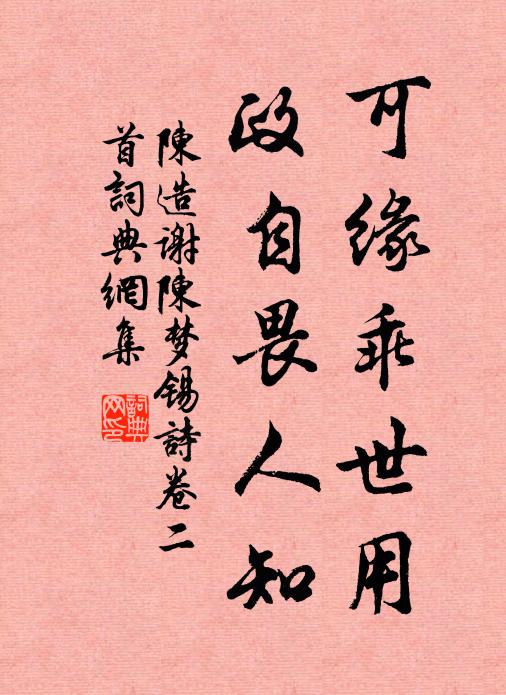 可緣乖世用
政自畏人知
陳造謝陳梦锡詩卷二
首詞典網集
詞典
网印